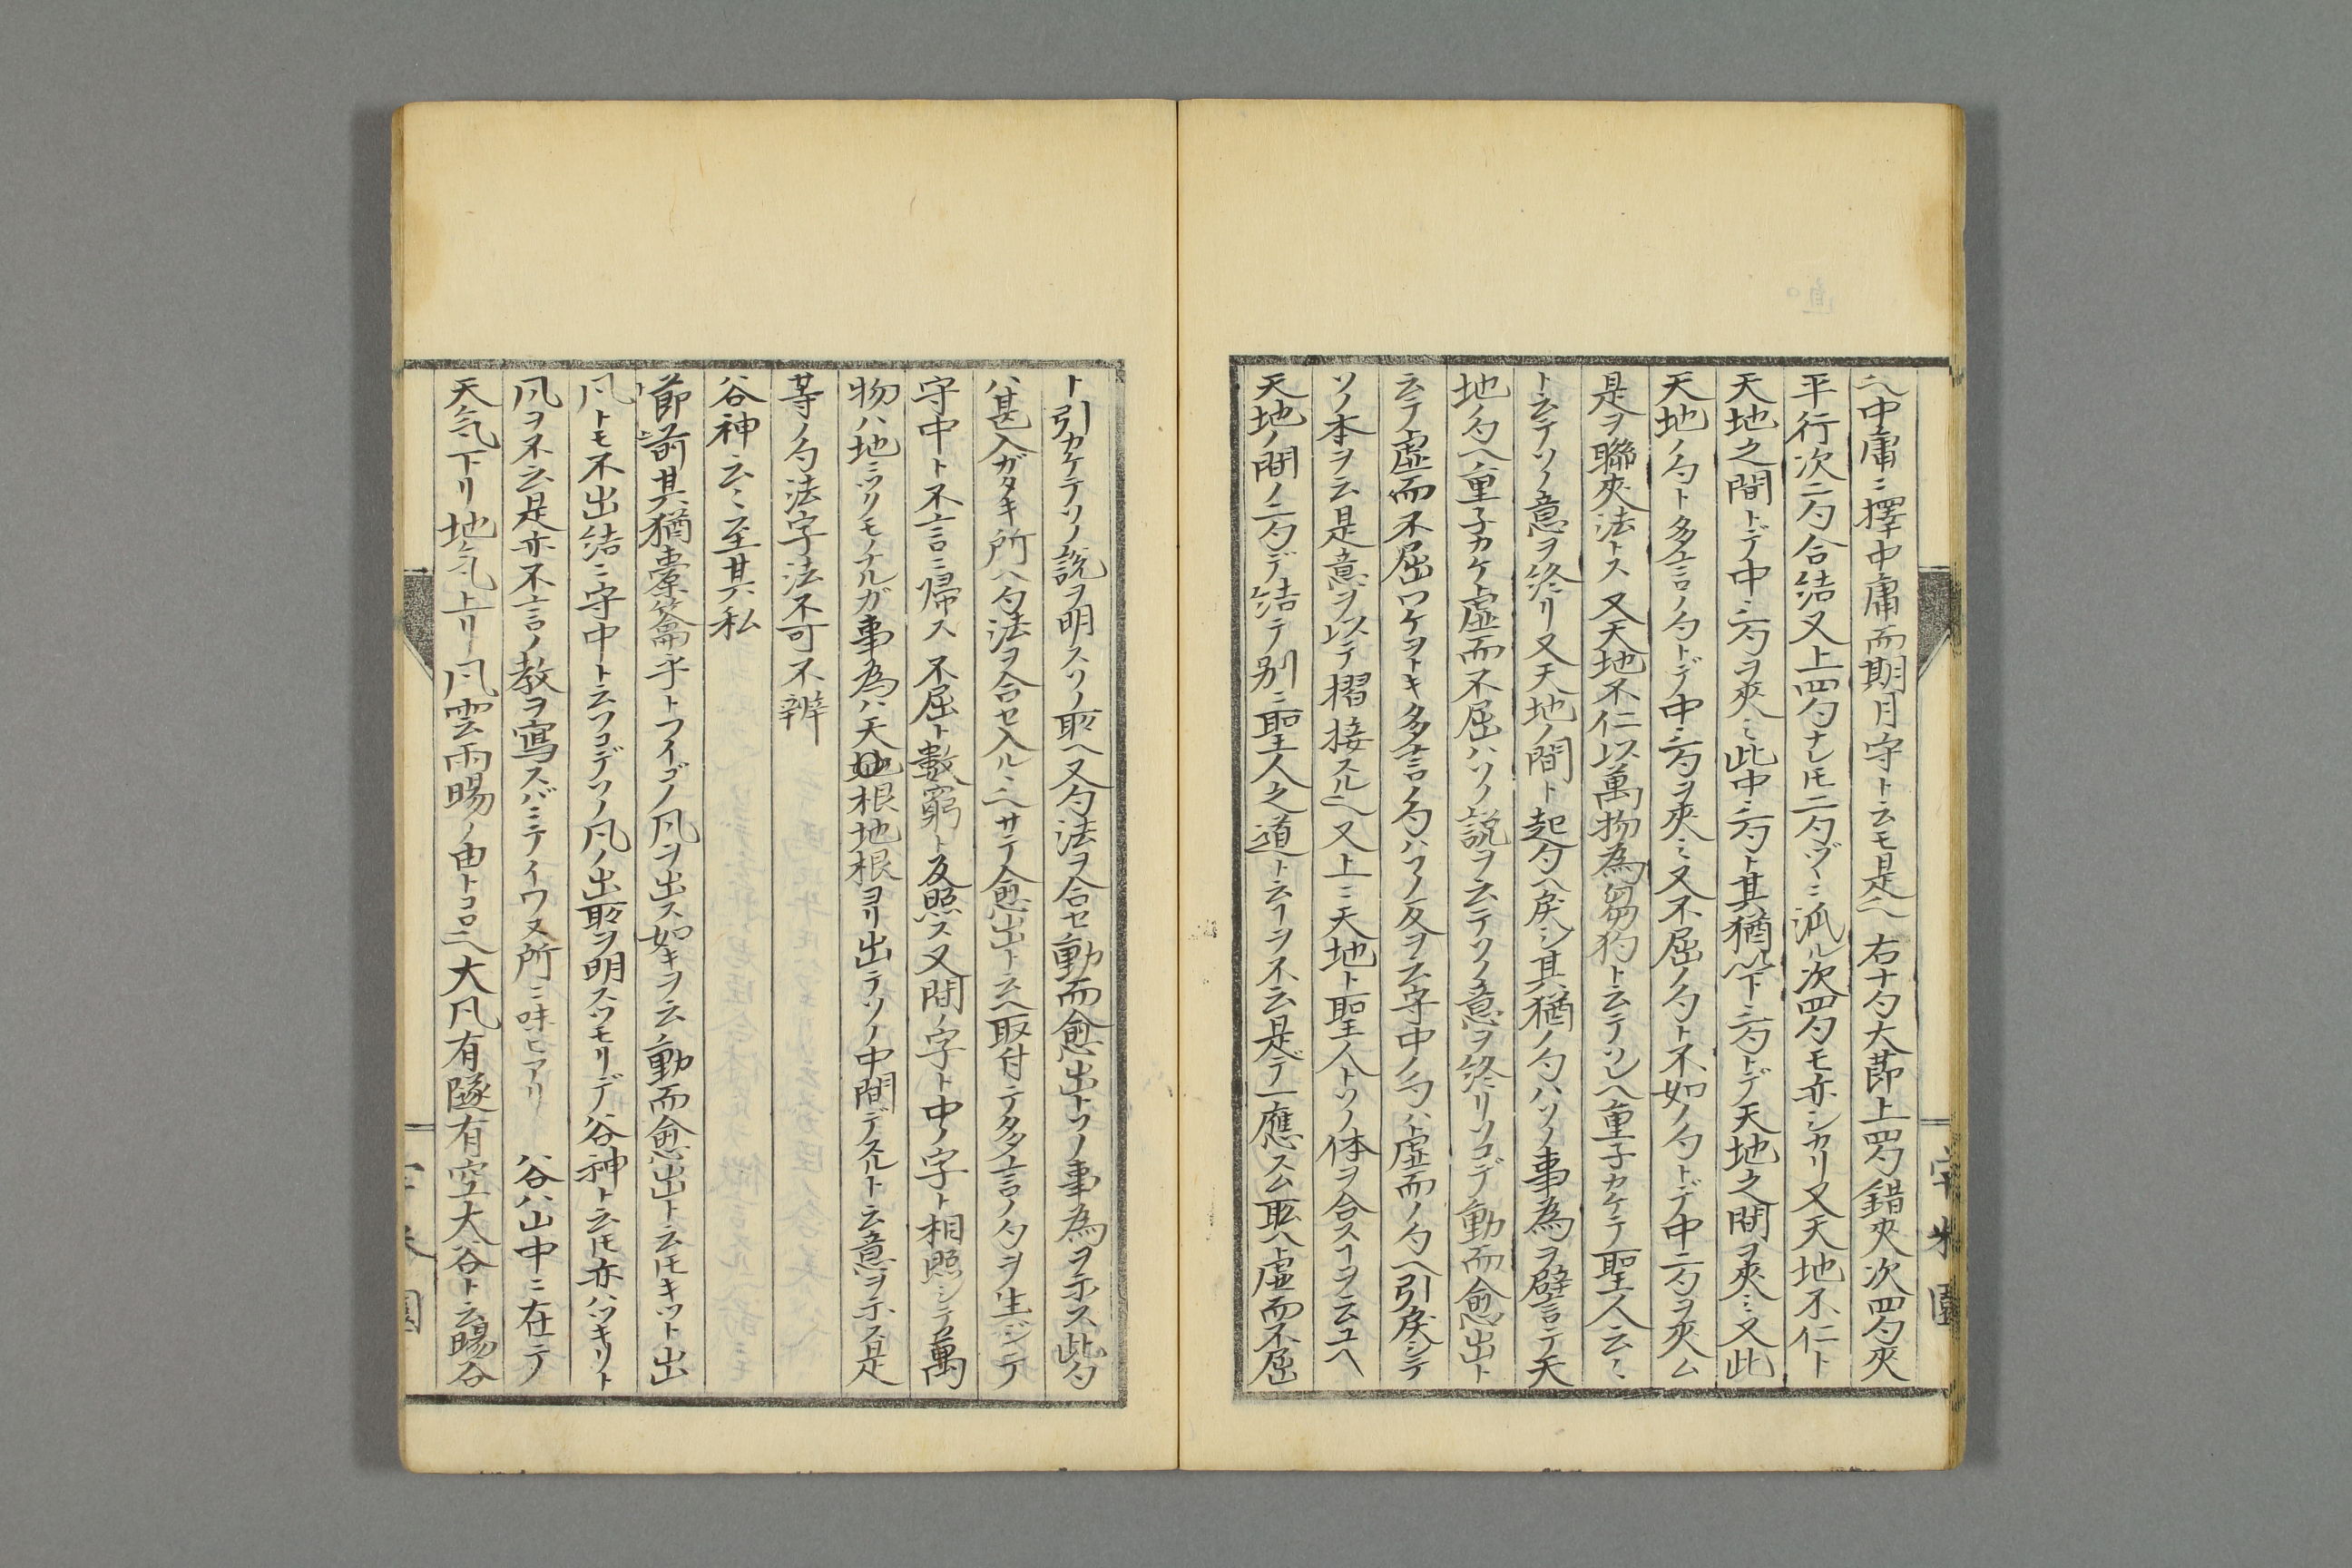 ヘ中庸ニ擇中庸而期月守ト云モ是ヘ右十勺大莭上四勺錯夾次四勺夾
平行次二勺合結又上四勺ナレ𪜈二勺ヅヽニ派ル次四勺モ亦シカリ又天地不仁ト
天地之間トデ中二勺ヲ夾ミ此中二勺ト其猶以下二勺トデ天地之間ヲ夾ミ又此
天地ノ勺ト多言ノ勺トデ中二勺ヲ夾ミ又不屈ノ勺ト不如ノ勺トデ中二勺ヲ夾ム
是ヲ聯夾法トス又天地不仁以萬物為芻狗ト云テソレヘ重子カケテ聖人云〻
ト云テソノ意ヲ終リ又天地ノ間ト起勺ヘ戻シ其猶ノ勺ハソノ事為ヲ譬言テ天
地ノ勺ヘ重子カケ虚而不屈ハソノ説ヲ云テソノ意ヲ終リソコデ動而愈出ト
云テ虚而不屈ワケヲトキ多言ノ勺ハソノ反ヲ云守中ノ勺ハト虚而ノ勺ヘ引戻シテ
ソノ本ヲ云是意ヲ以テ摺接スルヘ又上ニ天地ト聖人トソノ体ヲ合スヿヲ云ユヘ
天地ノ間ノ二勺デ結テ別ニ聖人之道ト云ヿヲ不云是デ一應スム㪽ヘト虚而不屈
ト引カケテソノ説ヲ明スソノ㪽ヘ又勺法ヲ合セ動而愈出トソノ事為ヲ示ス此勺
ハ甚入ガタキ所ヘ勺法ヲ合セ入ルヽヘサテ愈出ト云ヘ取付テ多言ノ勺ヲ生ジテ
守中ト不言ニ帰ス不屈ト數窮ト反照ス又間ノ字ト中ノ字ト相照シテ萬
物ハ地ニツリモノナルガ事為ハ天地根地根ヨリ出テソノ中間デスルト云意ヲ示ス是
等ノ勺法字法不可不辨
谷神云〻至其私
莭前其猶橐籥乎トフイゴノ凡ヲ出ス如キヲ云動而愈出ト云𪜈キット出
凡トモ不出結ニ守中ト云フコデソノ凡ノ出㪽ヲ明スツモリデ谷神ト云𪜈亦ハッキリト
凡ヲ不云是亦不言ノ教ヲ寫スバニテイワヌ所ニ味ヒアリ 谷ハ山中ニ在テ
天気下リ地気上リ凡雲雨暘ノ由トコロヘ大凡有隧有空大谷ト云暘谷